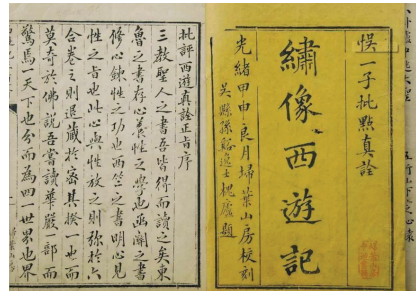 悮一子批點真詮
繡像西遊記
光緒甲申良月埽葉山房校刻
吳縣孫谿逸士槐廬題
批評西遊真詮正旨序
三教聖人之書吾皆得而讀之矣東
魯之書存心養性之學也函關之書
修心鍊性之功也西竺之書明心見
性之旨也此心與性放之則彌於六
合卷之則退藏於密其揆一也而
莫奇於佛說吾嘗讀華嚴一部而
驚焉一天下也分而為四一世界也界